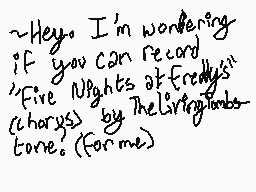 ~Hey. I'm wondering
if you can record
"Five Nights at Freddy's"
(chorus) by The Living Tombs
tone? (For me)